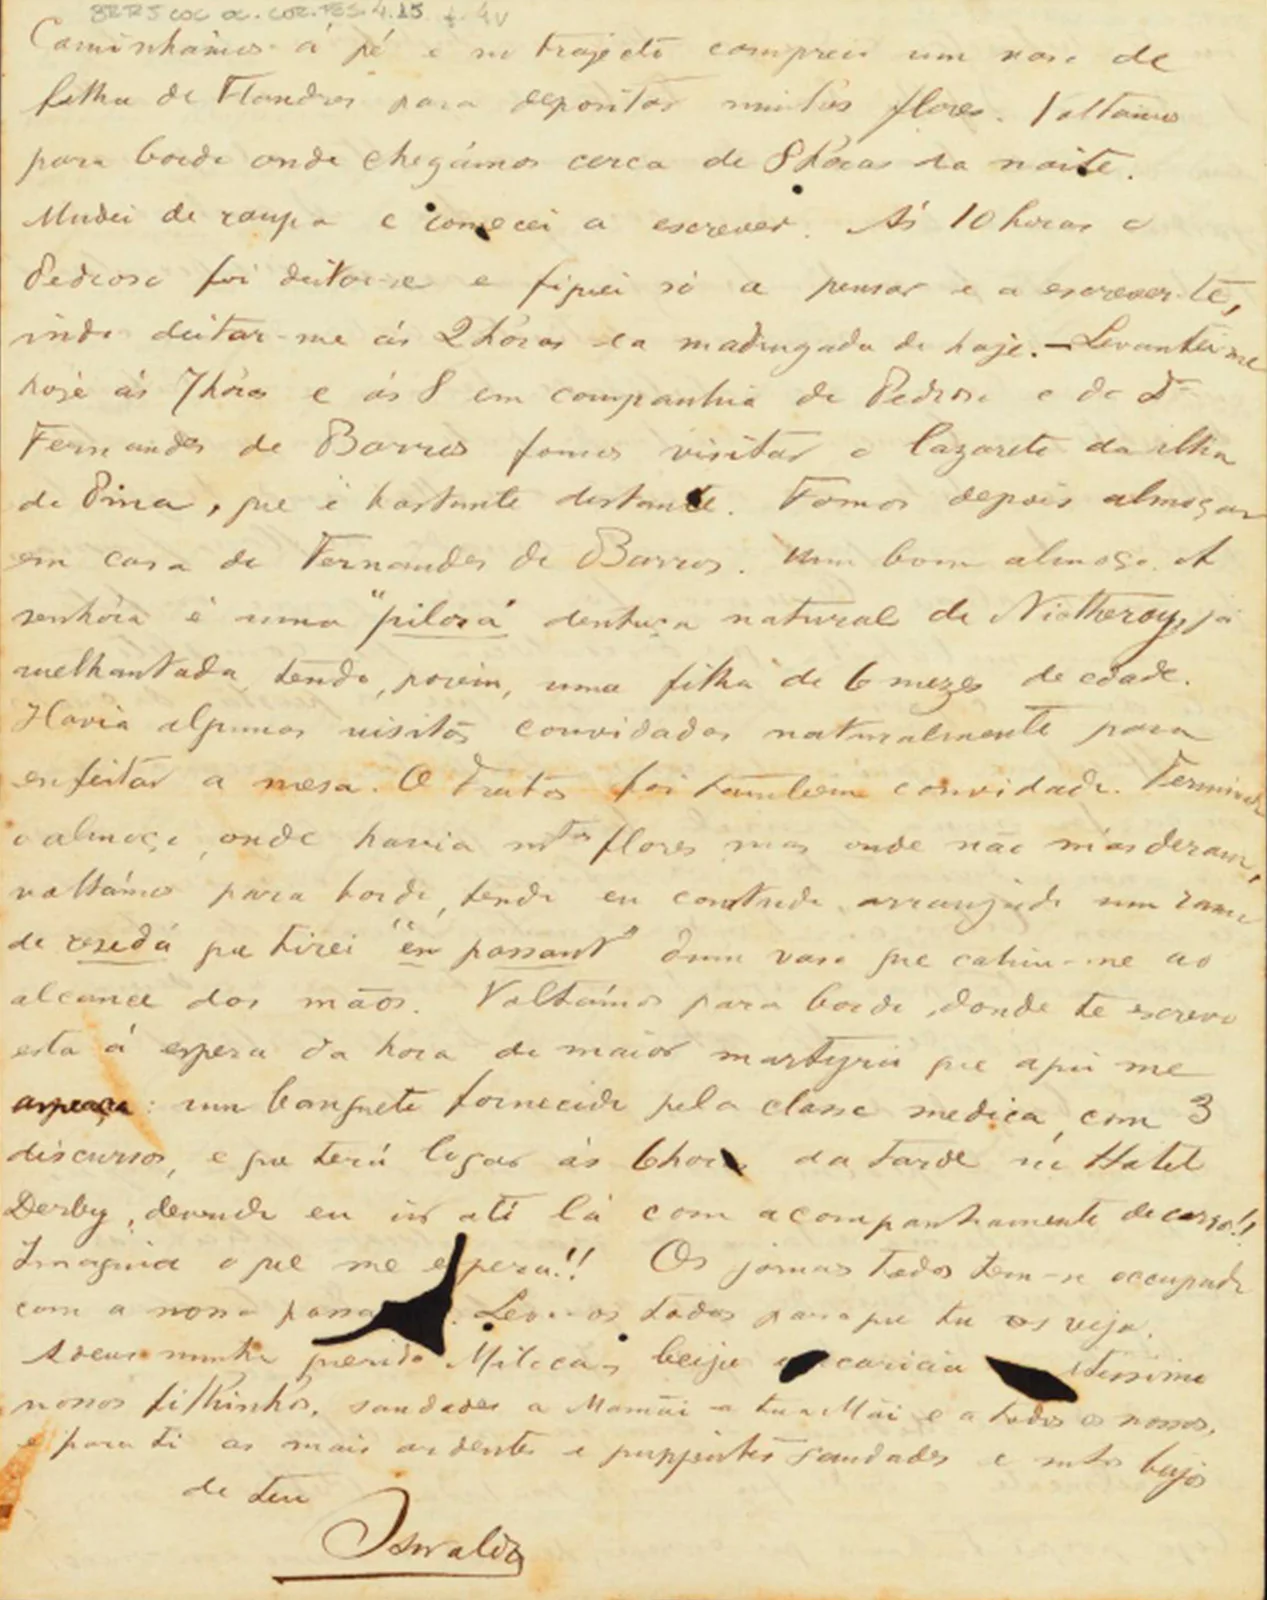 BR RJ COC OC. COR. PES. 4. 15. f. 4v
Caminhámos á pé e no trajecto comprei um vaso de
folha de Flandres para depositar minhas flores. Voltámos
para bordo onde chegámos cerca de 8 hóras da noite.
Mudei de roupa e comecei a escrever. Ás 10 horas o
Pedroso foi deitar-se e fiquei só a pensar e a escrever-te,
indo deitar-me ás 2 hóras da madrugada de hoje. — Levantei-me
hoje ás 7 hóras e ás 8 em companhia de Pedroso e do Dr
Fernandes de Barros fomos visitar o lazareto da ilha
do Pina, que é bastante distante. Fomos depois almoçar
em casa do Fernandes de Barros. Um bom almoço. A
senhóra é uma "pilora" dentuça natural de Nictheroy, já
velhantada, tendo, porem, uma filha de 6 mezes de edade.
Havia algumas visitas convidados naturalmente para
enfeitar a mesa. O Fratos foi tambem convidado. Terminado
o almoço, onde havia mtas flores mas onde não m'as deram,
voltámos para bordo, tendo eu contudo arranjado um ramo
de resedá que tirei "en passant" dum vaso que cahiu-me ao
alcance das mãos. Voltámos para bordo, donde te escrevo
esta á espera da hora de maior martyrio que aqui me
ameaça: um banquete fornecido pela classe medica, com 3
discursos, e que terá logar ás 6 horas da tarde no Hotel
Derby, devendo eu ir até lá com acompanhamento de carro!!
Imagina o que me espera!! Os jornaes todos tem-se occupado
com a nossa passa . Levo-os todos para que tu os veja.
Adeus minha querida Miloca, beija e caricia
nossos filhinhos, saudades a Mamãi a tua Mãi e a todos os nossos,
e para ti as mais ardentes e pungentes saudades e mtos beijos
de teu
Oswaldo